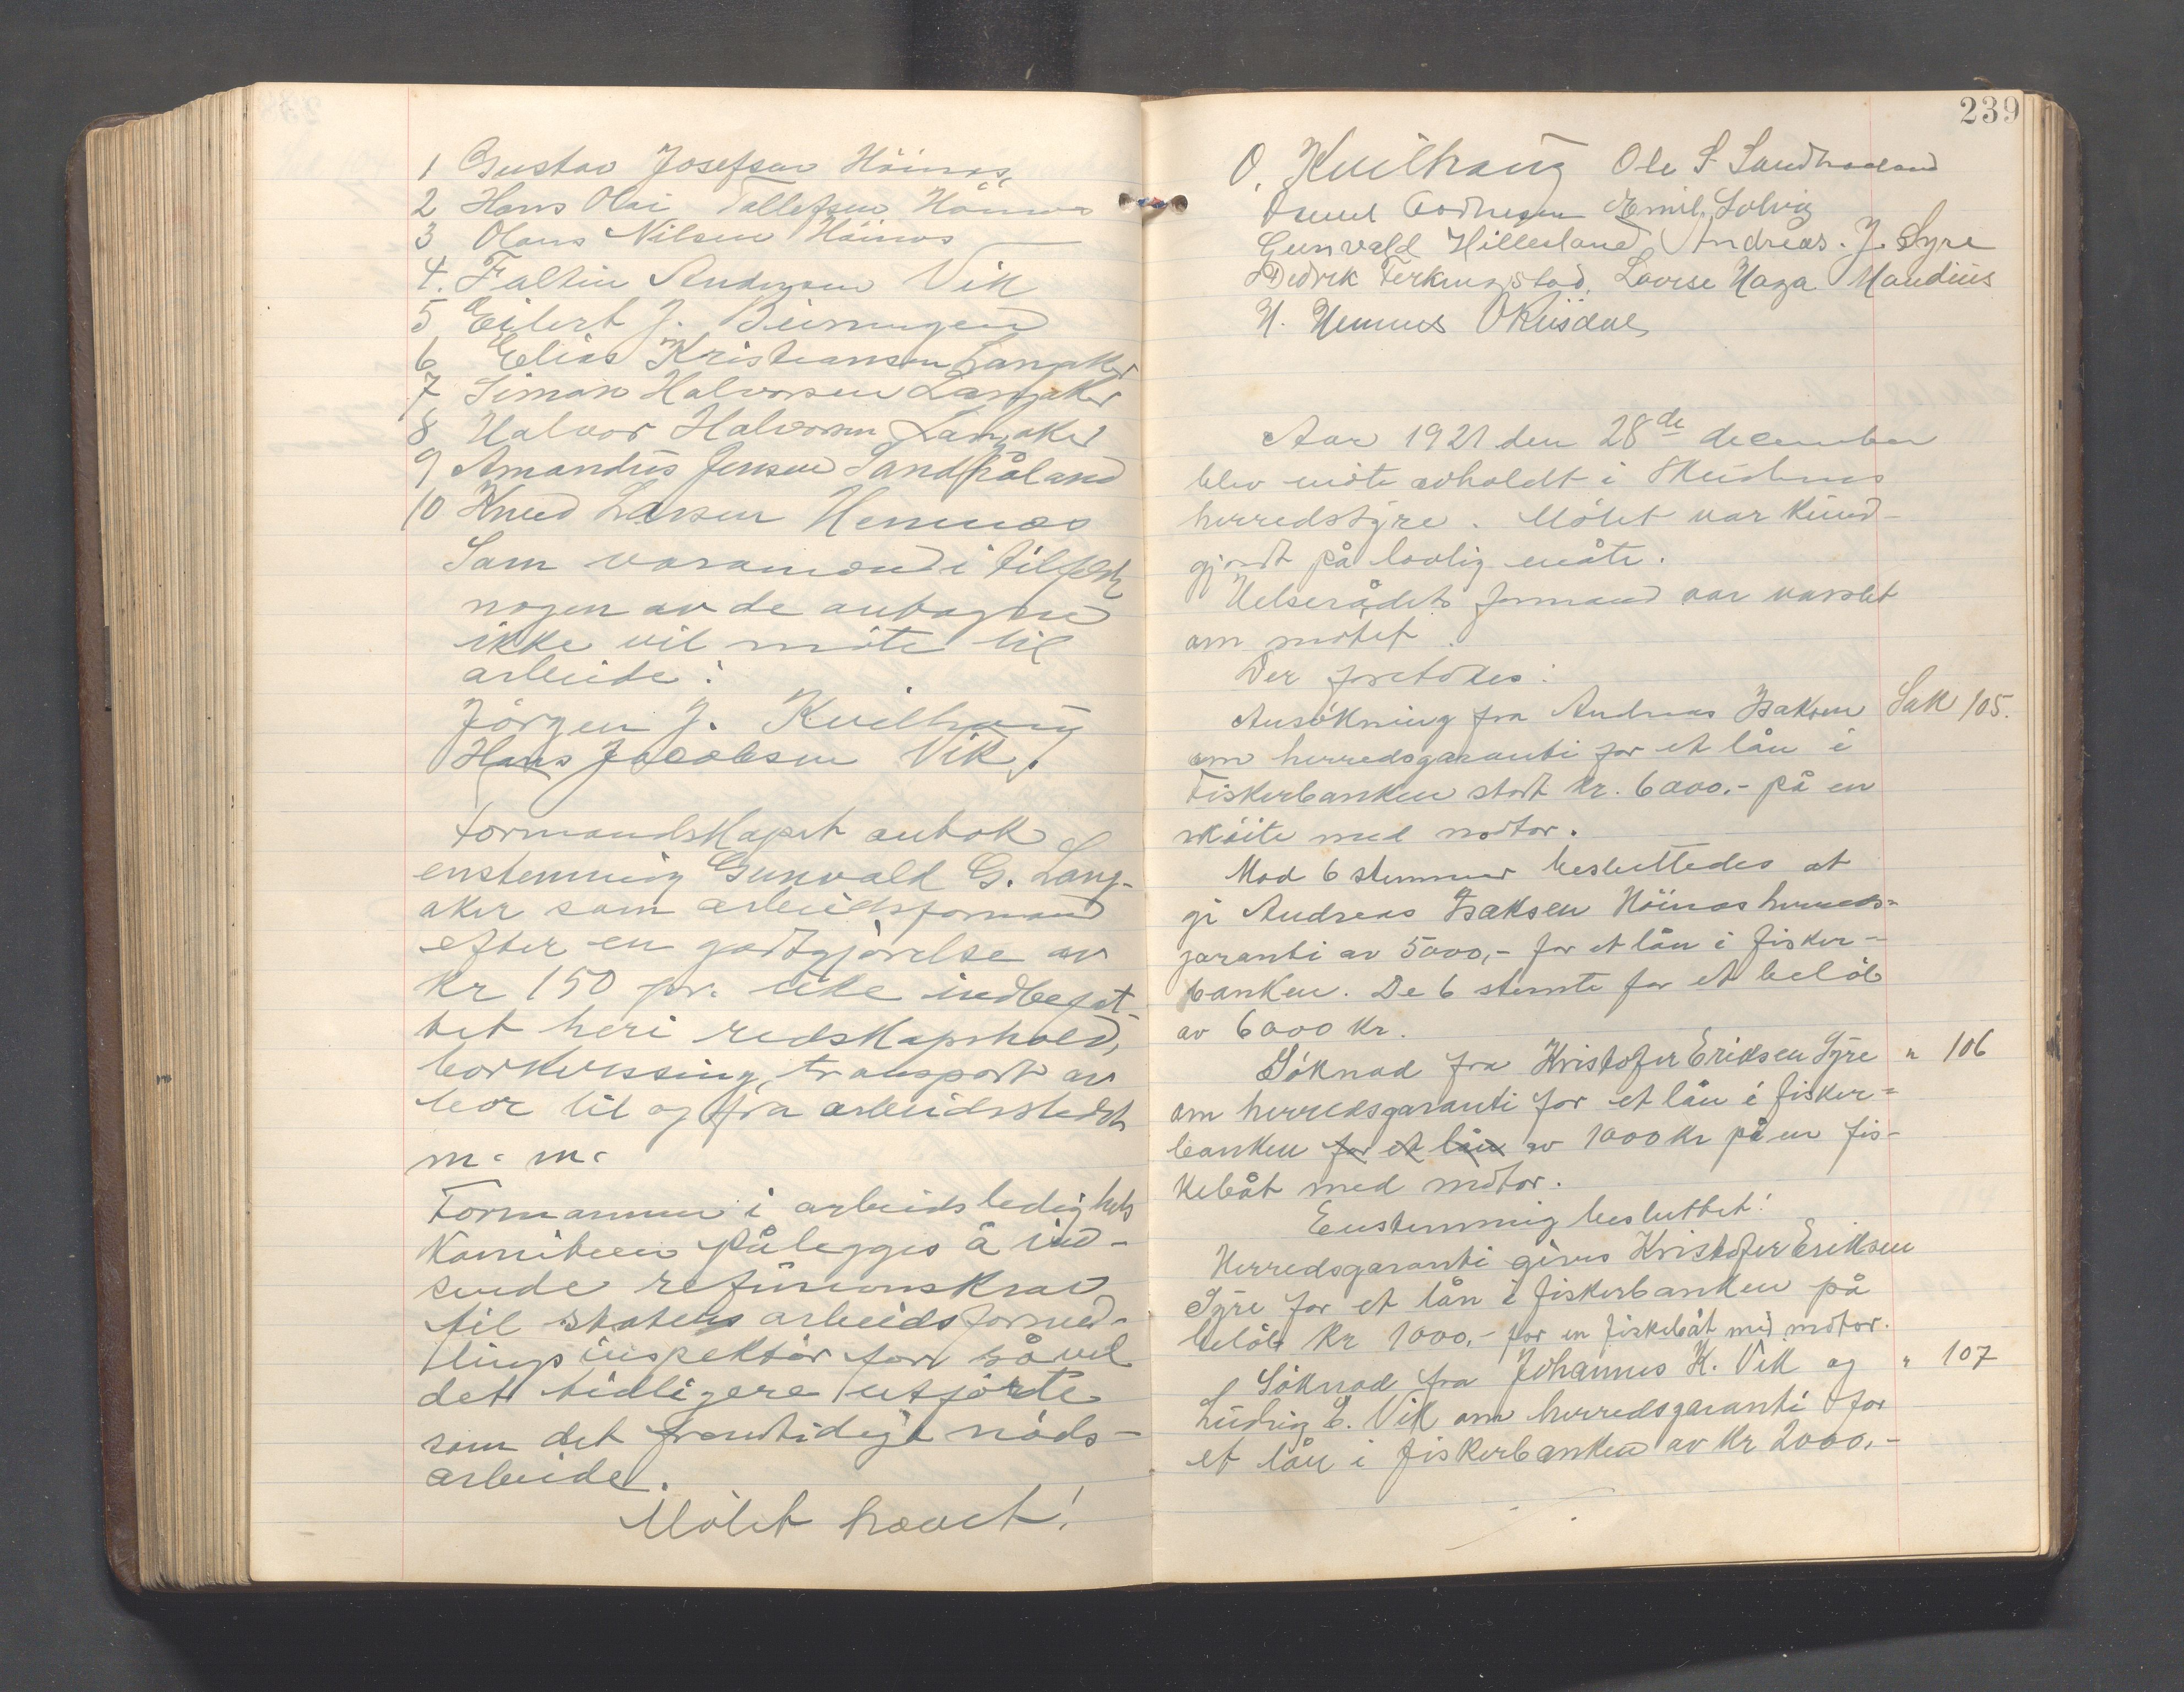 1 Gustav Josefsen Höines,
2 Hans Olai Tollefsen Höines
3 Olaus Nilsen Höines
4. Faltin Andersen Vik
5 Eilert J.
6 Elias Kristiansen Langaker
7 Simon Halvorsen Langaker
8 Halvor Halvorsen Langaker
9 Amandus Jensen Sandhåland
10 Knud Larsen Hemnes
Som varamænd i tilfelde
nogen av de antagne
ikke vil møte til
arbeide:
Jörgen J. Kvilhaug
Hans Jacobsen Vik.
Formandskapet antok
enstemmig Gunvald G. Lang-
aker som arbeidsformand
efter en godtgjörelse av
kr 150 pr. uke indbefat-
tet heri redskapshold,
borkvessing, transport av
bor til og fra arbeidsstedet
m. m.
Formannen i arbeidsledighets
komiteen pålegges å ind-
sende refusionskrav
til statens arbeidsformid-
lings inspektør for såvel
det tidligere utförte
som det fremtidige nöds-
arbeide.
Mötet hævet!
239
O. Kvilhaug Ole S Sandhaaland
Emil Solvig
Gunvald Hillesland Andreas. J. Syre
Didrik Ferkingstad. Lovise Haga Maudius
H. Hemnes
Aar 1921 den 28de december
blev möte avholdt i Skudenes
herredstyre. Mötet var kund-
gjordt på lovlig måte.
Helserådets formand var varslet
om mötet.
Der foretokes:
Ansökning fra Andreas Isaksen Sak 105.
om herredsgaranti for et lån i
Fiskerbanken stort kr. 6000.- på en
sköite med motor.
Mod 6 stemmer besluttedes at
gi Andreas Isaksen Höines herreds-
garanti av 5000,- for et lån i fisker-
banken. De 6 stemte for et belöb
av 6000 kr.
Söknad fra Kristofer Eriksen Syre " 106
om herredsgaranti for et lån i fisker-
banken for et lån av 1000 kr på en fis-
kebåt med motor.
Enstemmig besluttet:
Herredsgaranti gives Kristofer Eriksen
Syre for et lån i fiskerbanken på
belöb kr 1000,- for en fiskebåt med motor.
Söknad fra Johannes K. Vik og " 107
Ludvig E. Vik om herredsgaranti for
et lån i fiskerbanken av kr 2000.-